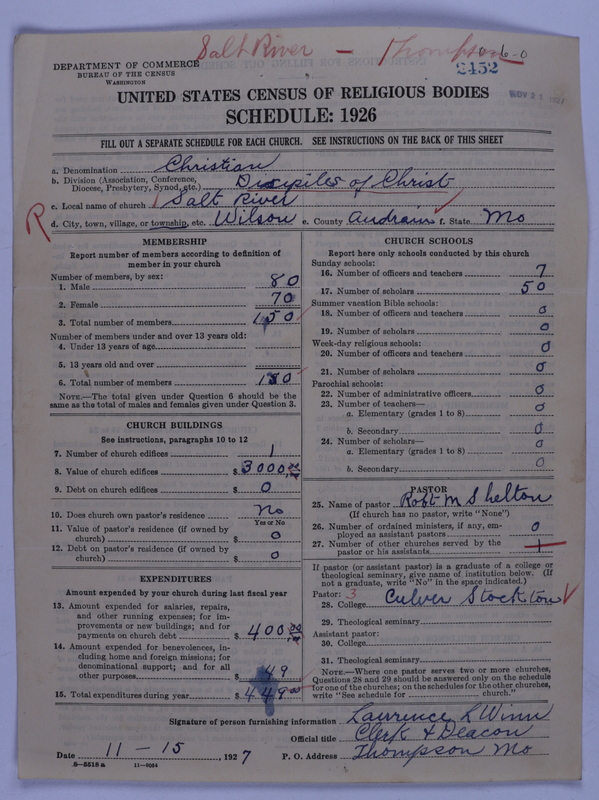 Salt River - Thompson
0-6-0
DEPARTMENT OF COMMERCE
BUREAU OF THE CENSUS
WASHINGTON
2452
NOV 21 1927
UNITED STATES CENSUS OF RELIGIOUS BODIES
SCHEDULE: 1926
FILL OUT A SEPARATE SCHEDULE FOR EACH CHURCH. SEE INSTRUCTIONS ON THE BACK OF THIS SHEET
a. Denomination Christian
b. Division (Association, Conference,
Diocese, Presbytery, Synod, etc.) Disciples of Christ
c. Local name of church Salt River
R
d. City, town, village, or township, etc. Wilson e. County Audrain f. State Mo
MEMBERSHIP
Report number of members according to definition of
member in your church
Number of members, by sex:
1. Male 80
2. Female 70
3. Total number of members 150
Number of members under and over 13 years old:
4. Under 13 years of age
5. 13 years old and over
6. Total number of members 150
NOTE.—The total given under Question 6 should be the
same as the total of males and females given under Question 3.
CHURCH BUILDINGS
See instructions, paragraphs 10 to 12
7. Number of church edifices 1
8. Value of church edifices $ 3000.00
9. Debt on church edifices $ 0
10. Does church own pastor's residence No
Yes or No
11. Value of pastor's residence (if owned by
church) $ 0
12. Debt on pastor's residence (if owned by
church) $ 0
EXPENDITURES
Amount expended by your church during last fiscal year
13. Amount expended for salaries, repairs,
and other running expenses; for im-
provements or new buildings; and for
payments on church debt $ 400.00
14. Amount expended for benevolences, in-
cluding home and foreign missions; for
denominational support; and for all
other purposes $ 49
15. Total expenditures during year $ 449.00
CHURCH SCHOOLS
Report here only schools conducted by this church
Sunday schools:
16. Number of officers and teachers 7
17. Number of scholars 50
Summer vacation Bible schools:
18. Number of officers and teachers 0
19. Number of scholars 0
Week-day religious schools:
20. Number of officers and teachers 0
21. Number of scholars 0
Parochial schools:
22. Number of administrative officers 0
23. Number of teachers—
a. Elementary (grades 1 to 8) 0
b. Secondary 0
24. Number of scholars—
a. Elementary (grades 1 to 8) 0
b. Secondary 0
PASTOR
25. Name of pastor Robt M Shelton
(If church has no pastor, write "None")
26. Number of ordained ministers, if any, em-
ployed as assistant pastors 0
27. Number of other churches served by the
pastor or his assistants 1
If pastor (or assistant pastor) is a graduate of a college or
theological seminary, give name of institution below. (If
not a graduate, write "No" in the space indicated.)
Pastor: 3
28. College Culver Stockton
29. Theological seminary
Assistant pastor:
30. College
31. Theological seminary
NOTE.—Where one pastor serves two or more churches,
Questions 28 and 29 should be answered only on the schedule
for one of the churches; on the schedules for the other churches,
write "See schedule for church."
Signature of person furnishing information Laurence L Winn
Official title Clerk & Deacon
Date 11-15, 1927 P. O. Address Thompson Mo
8-5518a 11-9084